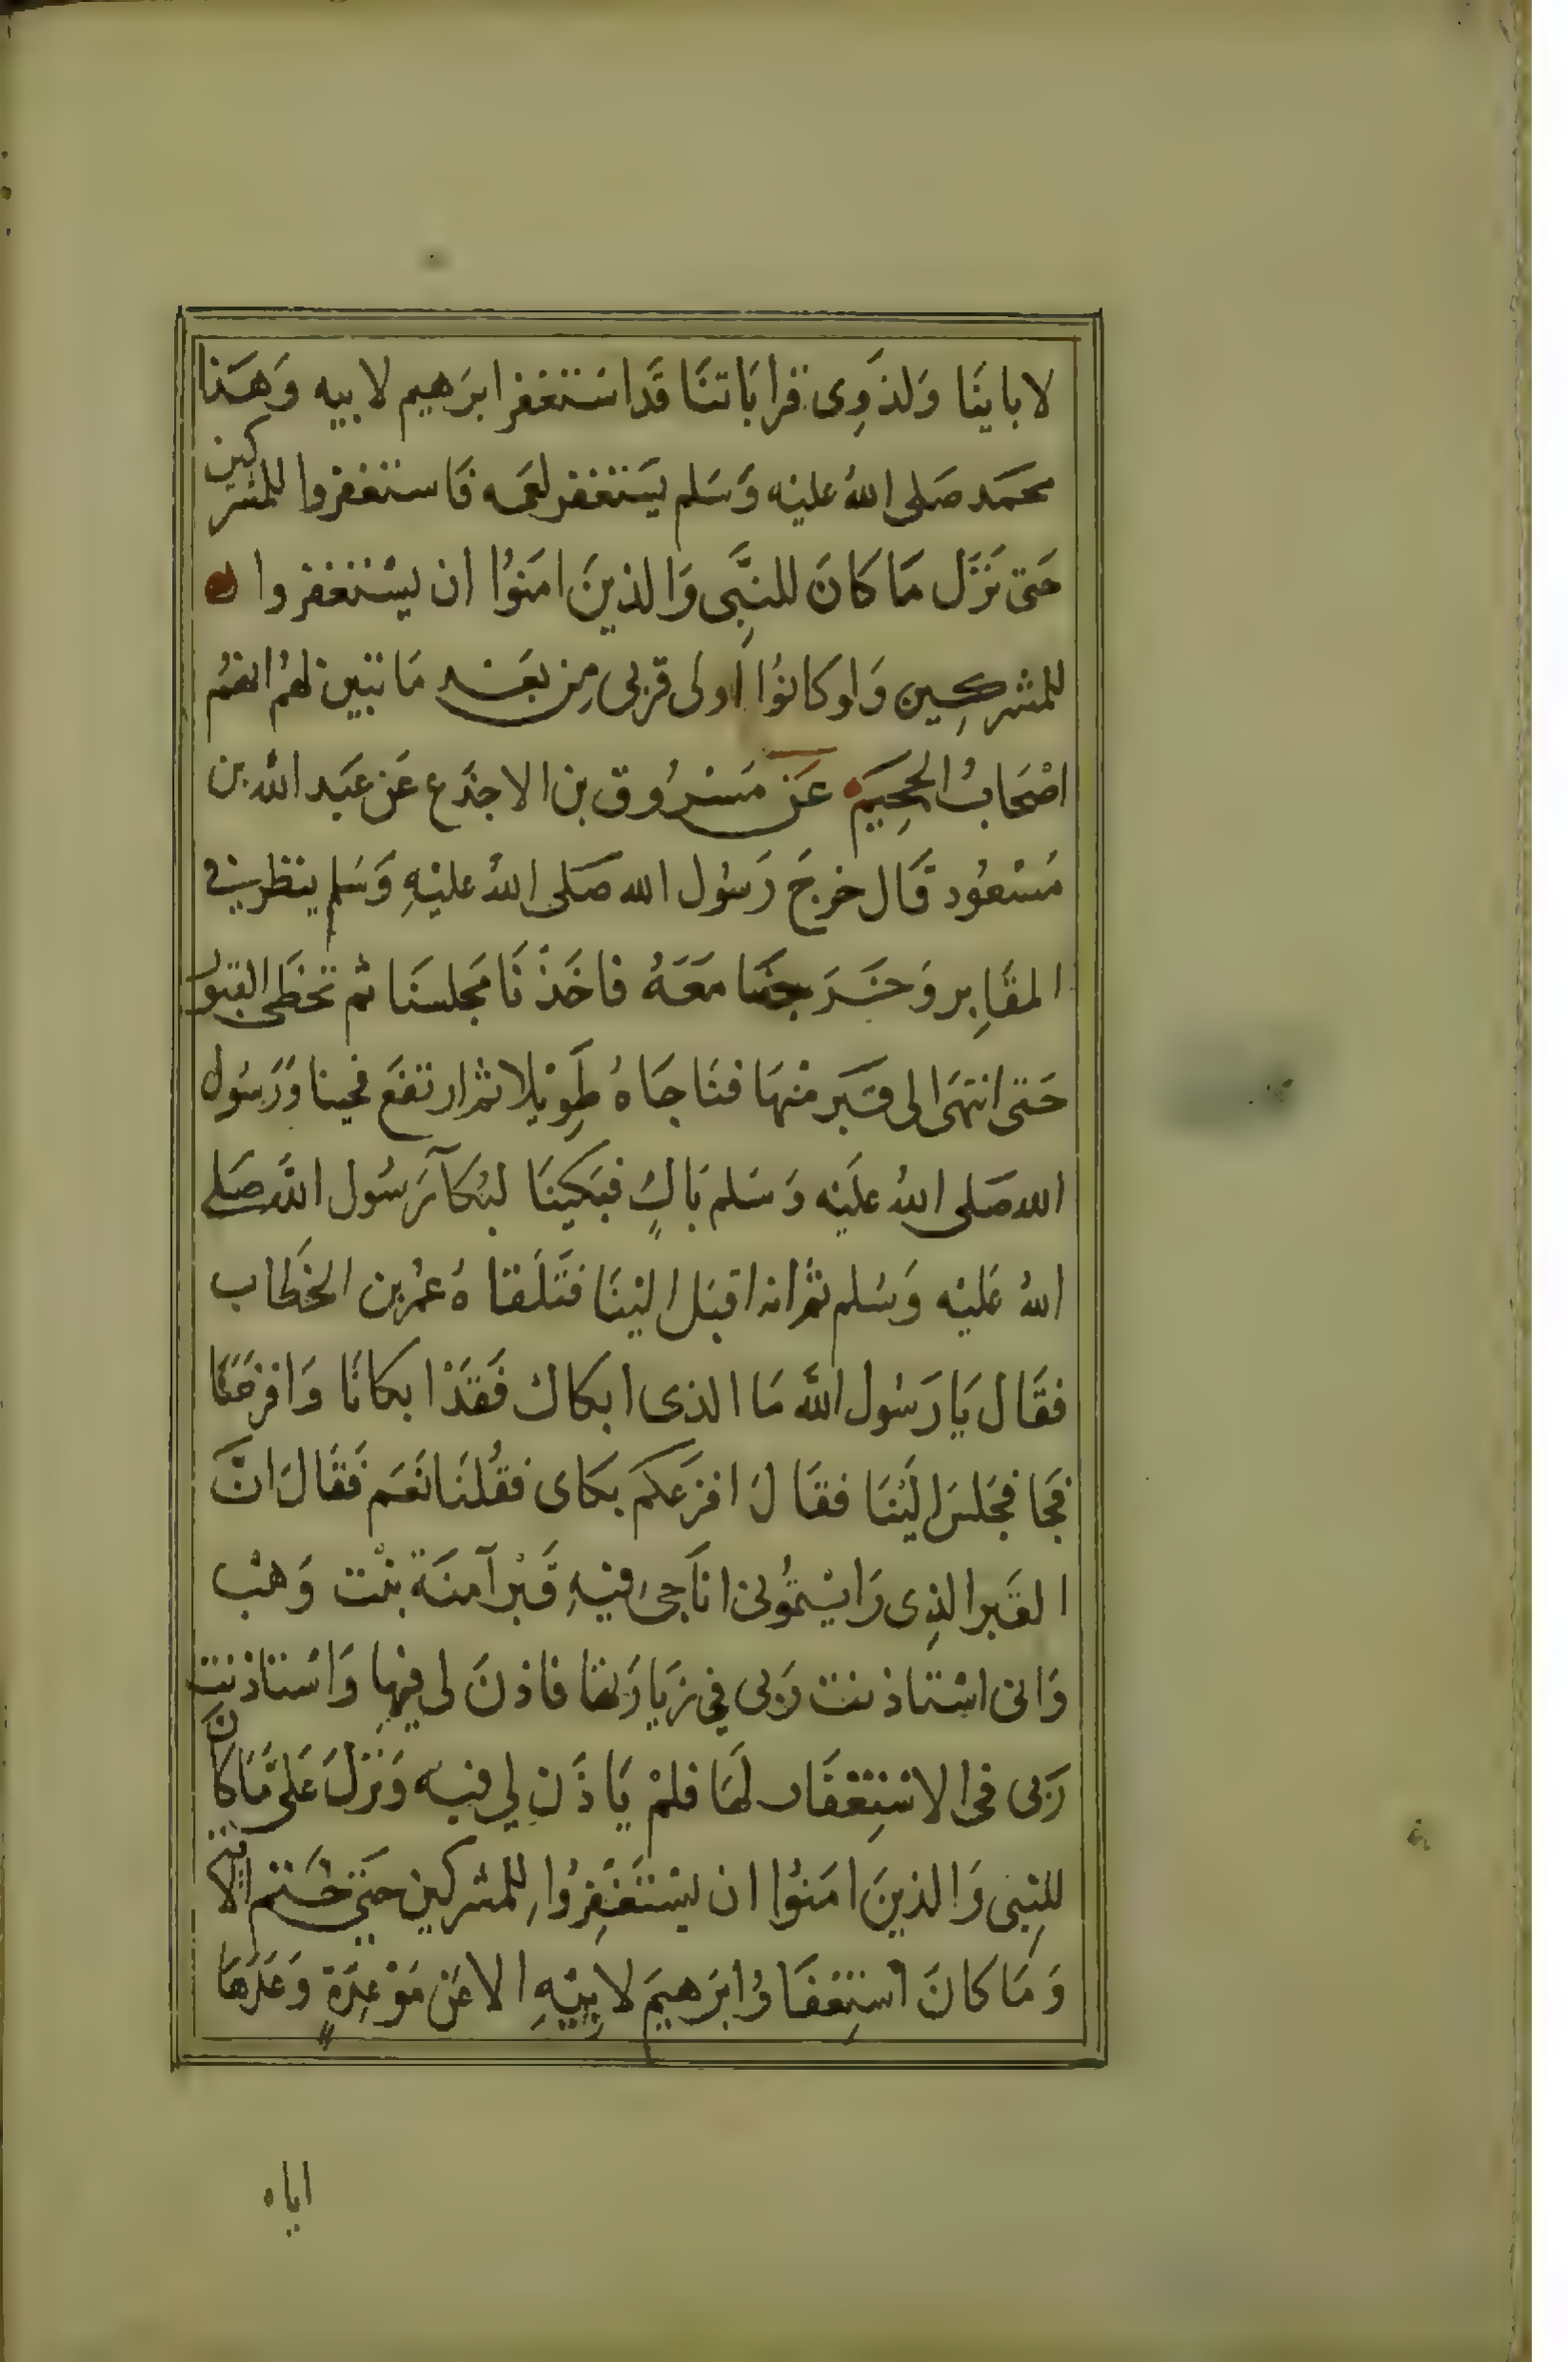 لاباينَا وَلذوِى قرابَاتنَا قَداسْتغفر ابرَهيم لابيه وَهَذا
محمَد صَلى اللهُ عليْه وَسَلم يسَتغفر لعَمه فَاستغفروا للمشركين
حَتى نَزَل مَا كَانَ للنبِّى وَالذينَ امَنوُا ان يسْتغفروا
للمشركِين وَلو كانوُا اولى قربى مِن بعَد مَا تبين لهُم انهُم
اصْحَابُ الجحِيَم عَن مَسْرُوق بن الاجدَع عَن عبَد الله بن
مَسْعوُد قَال خرجَ رَسُول الله صَلى اللهُ عليْهِ وَسَلم ينظر في
المقَابِر وَخَرَجنَا مَعَهُ فاخَذْنَا مَجلسنَا ثم تخطَى القبور
حَتى انتهَى الى قَبَر منْهَا فنَاجَاهُ طَوِيْلا ثم ارتفعَ نحيبا وَرَسُول
الله صَلى اللهُ عليَه وَسَلم بَاكٍ فبَكينَا لبُكآ رَسُول اللهَ صَلى
اللهُ عَليْه وَسَلم ثم انه اقبَل اليْنَا فتَلَقاهُ عمُر بن الخَطاب
فقَال يَا رَسُول اللهَ مَا الذى ابكاك فَقدَْ ابكانَا وَافزعَنَا
فجَا فجَلسَ اليْنَا فقَالَ افزعَكم بكَاى فقُلنَا نعَم فَقَالَ انَّ
القَبر الذِى رَايْتموُنى انَاجى فيْهِ قَبْر آمنَة بنْت وَهْب
وَانى اسْتاذنت رَبى فِي زيَارَتهَا فاذنَ لى فِيهِا وَاسْتاذنت
رَبى فى الاسْتِغفَار لهَا فلمْ يَاذَن لِي فيه وَنزَلَ عَلىَّ مَا كَانَ
للنِبى وَالذينَ امَنوُا ان يسْتغَفِروُا للمشركين حَتي خَتم الايتين
وَمَا كانَ اسْتِغفَارُ ابرَهيمَ لابِيْهِ الا عَن مَوْعِدَةٍ وَعَدَهَا
اياه